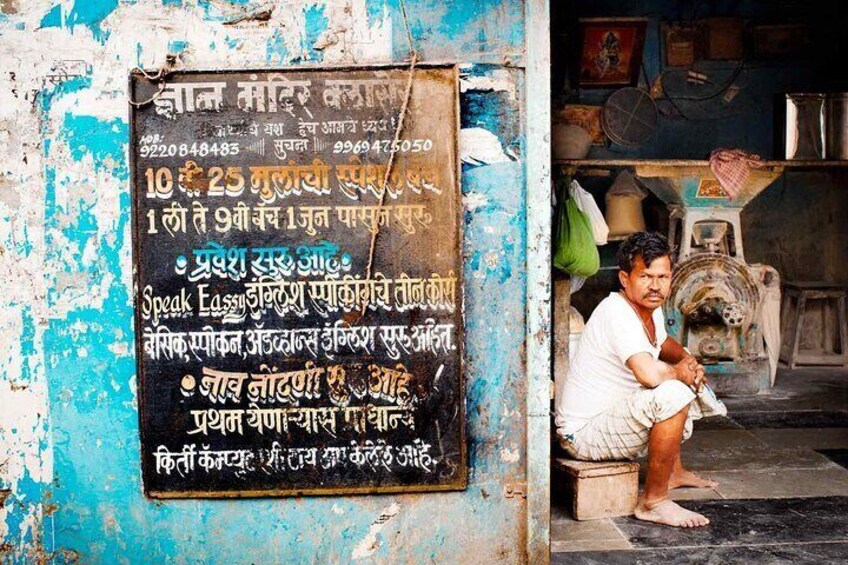 ज्ञान मंदिर क्लासेस
यश हेच आमचे ध्येय!
MOB:
9220848483 सुचना 9969475050
10 वी 25 मुलांची स्पेशल बॅच
1 ली ते 9वी बॅच 1जुन पासुन सुरु
प्रवेश सुरु आहे
Speak Eassy इंग्लिश स्पीकींगचे तीन कोर्स
बेसिक, स्पोकन, ॲडव्हान्स इंग्लिश सुरु आहित.
नाव नोंदणी सुरु आहे
प्रथम येणाऱ्यास प्राधान्य
किर्ती कॅम्प्युटर्सशी टाय अप केलेले आहे.